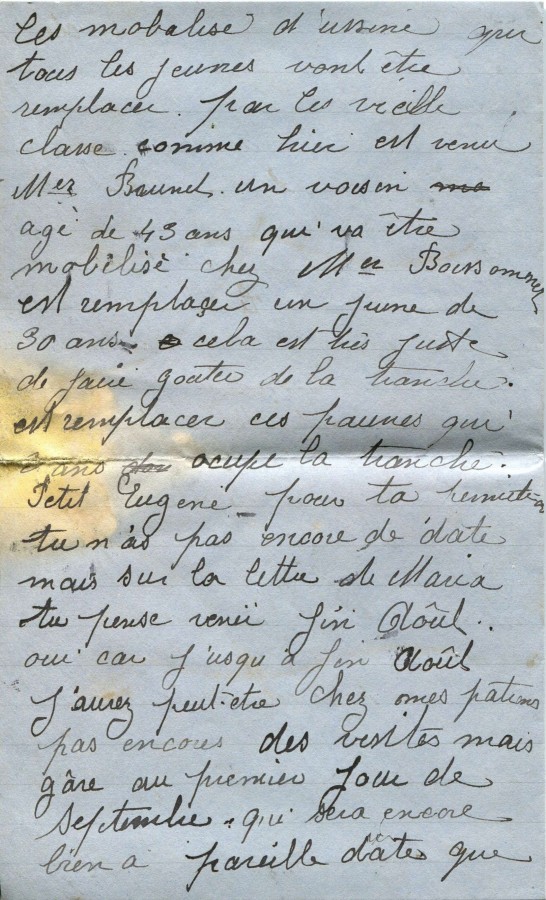 les mobalisé d'usine que
tous les jeunes vont être
remplacer. par les vieille
classe comme hier est venu
Mer Brunel. un voisin
agé de 43 ans qui va être
mobilisé chez Mer Boissonnet
est remplaçer un jeune de
30 ans. cela est très juste
de faire goater de la tranche.
est remplacer ces pauves qui
3 ans ocupe la tranche.
Petit Eugene pour ta permition
tu n'as pas encore de date
mais sur la lettre de Maria
tu pense venir fin Aôut..
oui car j'usqu'a fin Aôut
j'aurez peut-être chez mes patrons
pas encores des visites mais
gâre au premier jour de
Septembre. qui sera encore
bien a pareille dates que